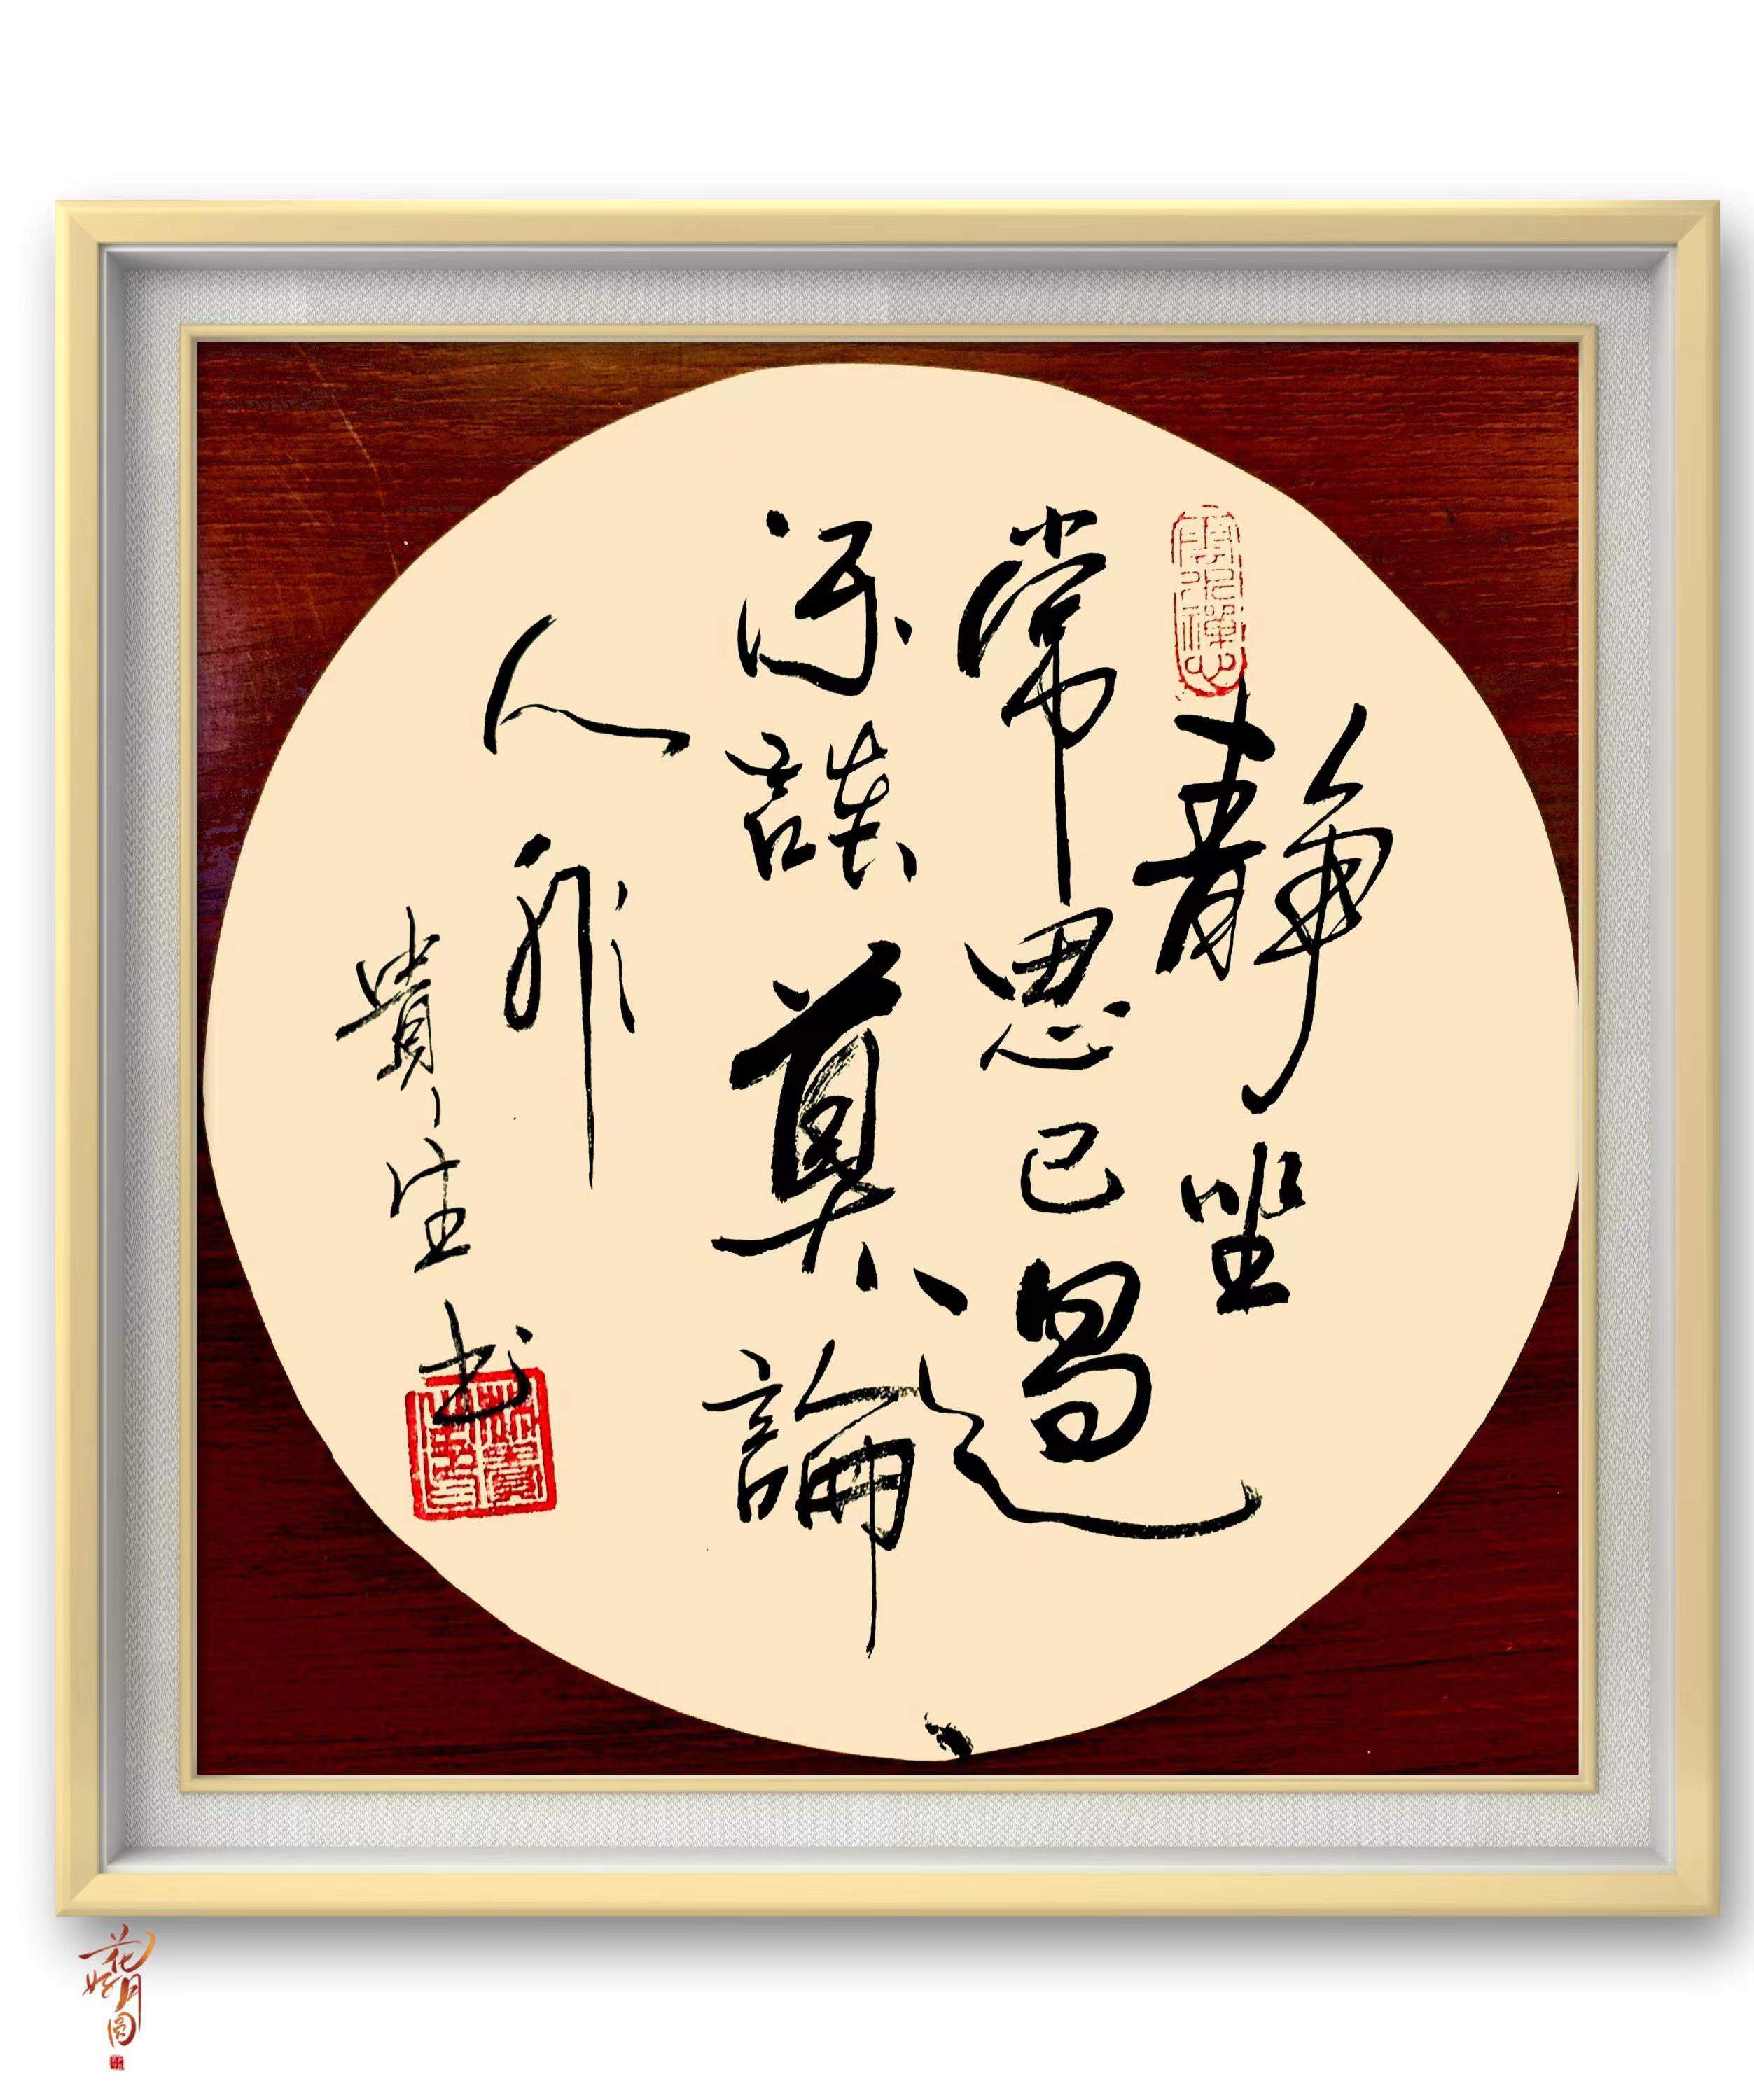 静坐
常思己過
閑談莫論
人非
貴生书
花好月圆